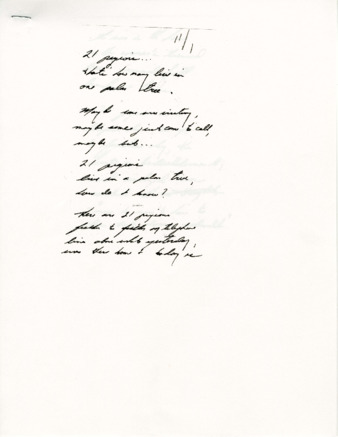 11/1
21 pigeons...
that's how many live in
one palm tree.
Maybe some are visiting,
maybe some just came to call,
maybe but...
21 pigeons
live in a palm tree,
how do I know?
there are 21 pigeons
feather to feather on telephone
line
yesterday,
today